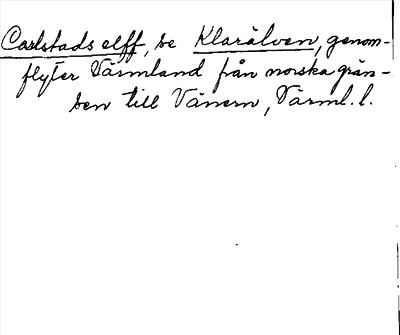 Carlstads elff, se Klarälven, genom-
flyter Värmland från norska grän-
sen till Vänern, Värml. l.